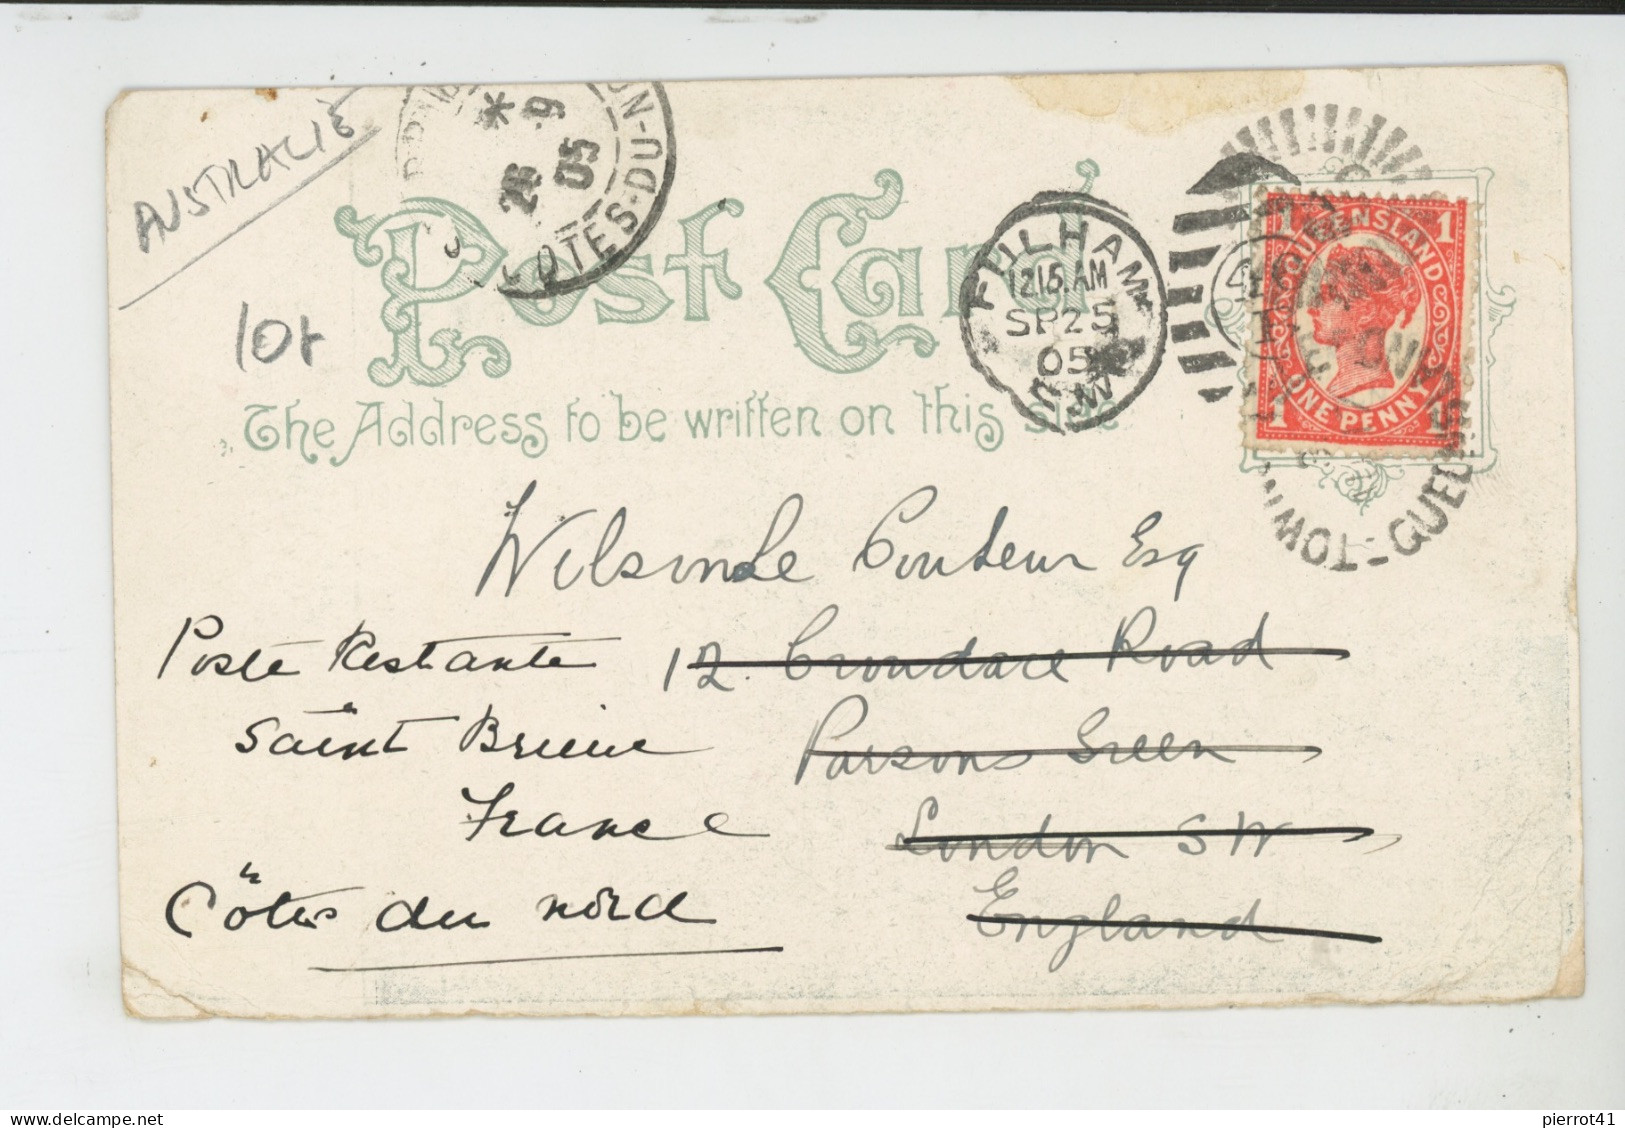 AUSTRALIE
26 9 05
CÔTES-DU-N
Post Card
The Address to be written on this side
10f
FULHAM
12.15.AM
SP 25
05
S.W.
QUEENSLAND
ONE PENNY
1 1 1 1
TOWN
QUEE
Wilson Le Couteur Esq
12 Crondace Road
Parsons Green
London SW
England
Poste Restante
Saint Brieuc
France
Côtes du nord
pierrot41